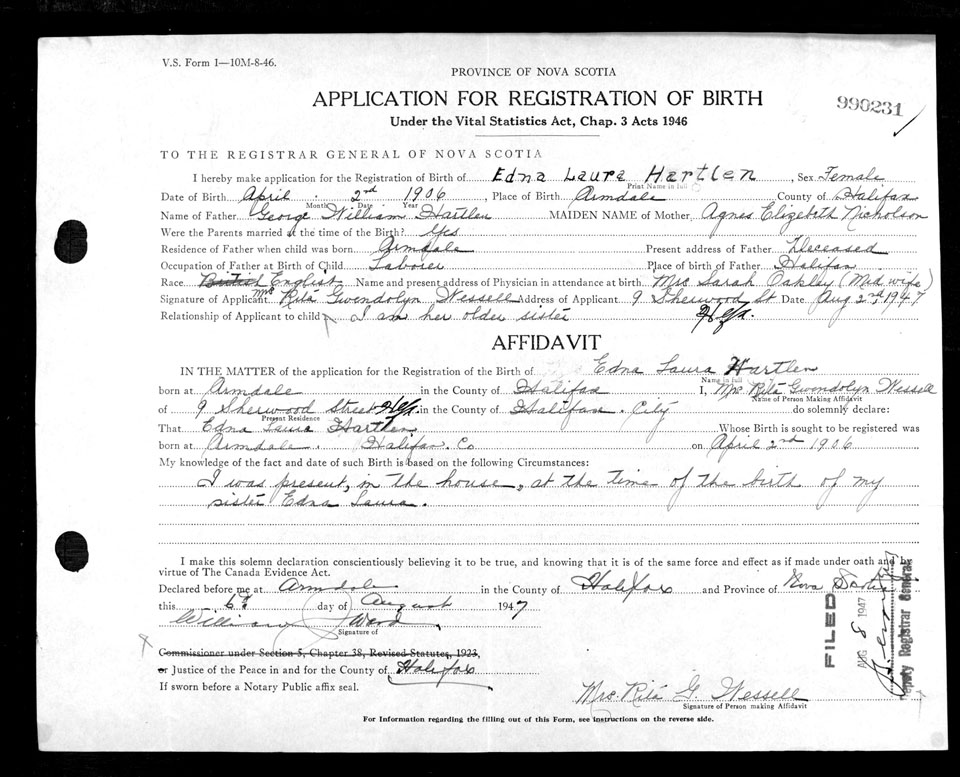 V.S. Form 1—10M-8-46.
PROVINCE OF NOVA SCOTIA
APPLICATION FOR REGISTRATION OF BIRTH
990231
Under the Vital Statistics Act, Chap. 3 Acts 1946
TO THE REGISTRAR GENERAL OF NOVA SCOTIA
I hereby make application for the Registration of Birth of Edna Laura Hartlen, Sex Female
Print Name in full
Date of Birth April 2nd 1906, Place of Birth Armdale County of Halifax
Month Date Year
Name of Father George William Hartlen MAIDEN NAME of Mother Agnes Elizabeth Nicholson
Were the Parents married at the time of the Birth? Yes
Residence of Father when child was born Armdale Present address of Father Deceased
Occupation of Father at Birth of Child Laborer Place of birth of Father Halifax
Race British English Name and present address of Physician in attendance at birth Mrs Sarah Oakley (Midwife)
Signature of Applicant Mrs Rita Gwendolyn Wessell Address of Applicant 9 Sherwood St Date Aug 2nd, 1947
Relationship of Applicant to child I am her older sister Hfx.
AFFIDAVIT
IN THE MATTER of the application for the Registration of the Birth of Edna Laura Hartlen
Name in full
born at Armdale in the County of Halifax I, Mrs Rita Gwendolyn Wessell
Name of Person Making Affidavit
of 9 Sherwood Street Hfx in the County of Halifax City do solemnly declare:
Present Residence
That Edna Laura Hartlen Whose Birth is sought to be registered was
born at Armdale. Halifax. Co on April 2nd 1906
My knowledge of the fact and date of such Birth is based on the following Circumstances:
I was present, in the house, at the time of the birth of my
sister Edna Laura.
I make this solemn declaration conscientiously believing it to be true, and knowing that it is of the same force and effect as if made under oath and by
virtue of The Canada Evidence Act.
Declared before me at Armdale in the County of Halifax and Province of Nova Scotia
this 6th day of August 1947
William Ward
Signature of
Commissioner under Section 5, Chapter 38, Revised Statutes, 1923,
or Justice of the Peace in and for the County of Halifax
If sworn before a Notary Public affix seal.
FILED
AUG 8 1947
Deputy Registrar General
Mrs. Rita G. Wessell
Signature of Person making Affidavit
For Information regarding the filling out of this Form, see instructions on the reverse side.